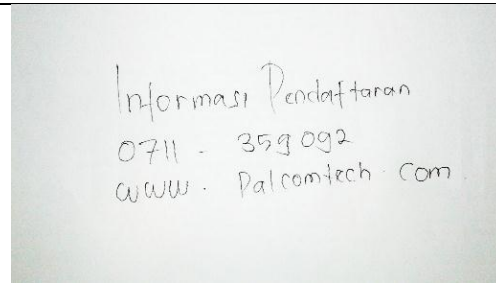 Informasi Pendaftaran
0711 - 359092
www. Palcomtech. com